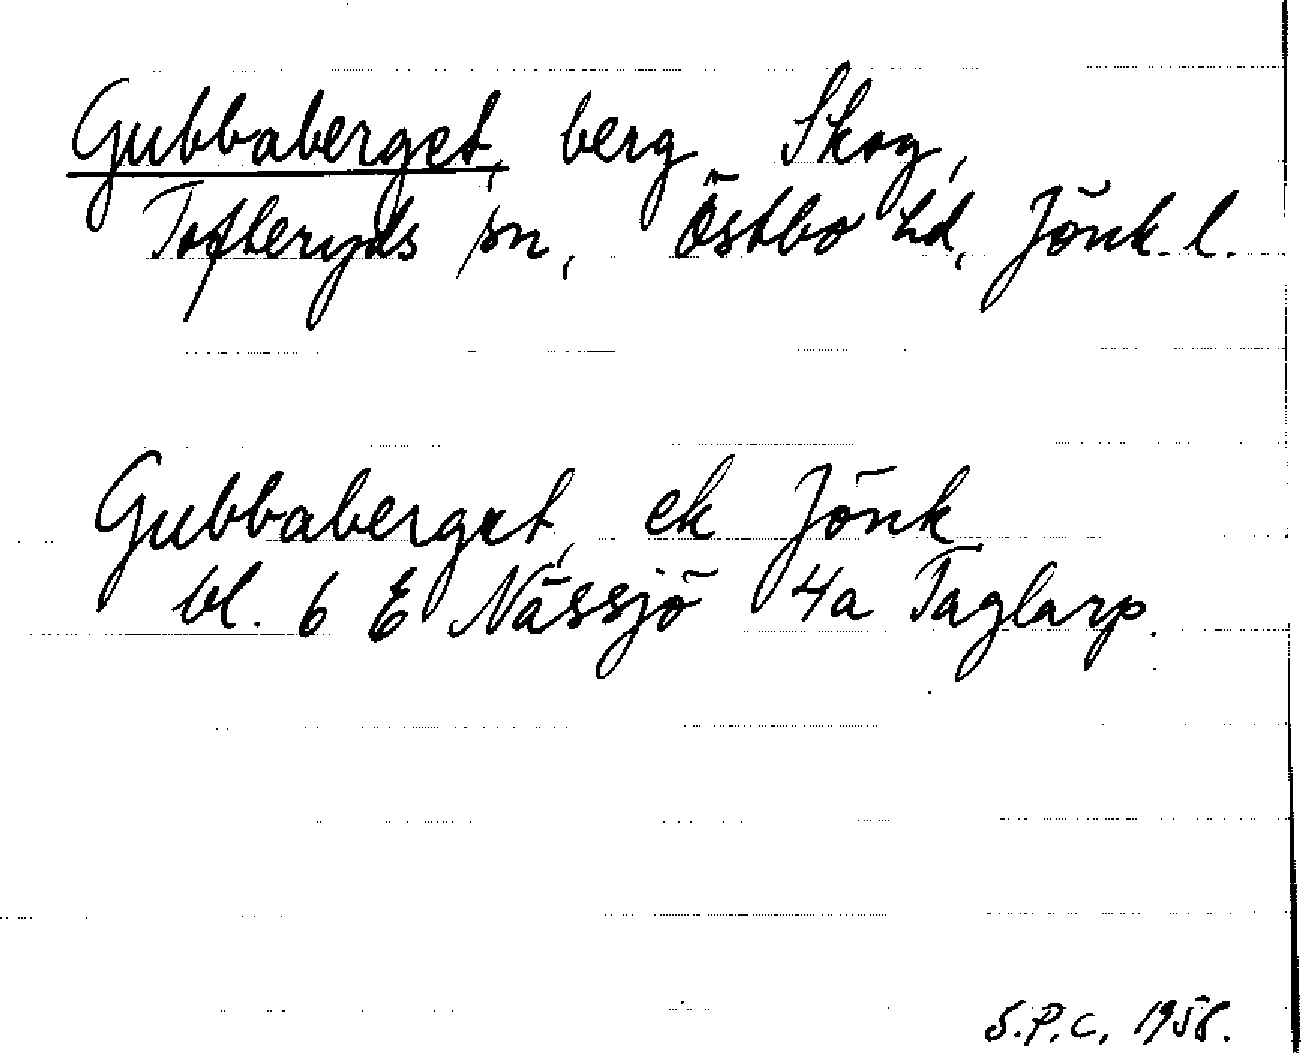 Gubbaberget, berg Skog,
Tofteryds sn, Östbo hd, Jönk. l.
Gubbaberget, ek Jönk
bl. 6 E Nässjö 4a Taglarp.
S.P.C. 1958.